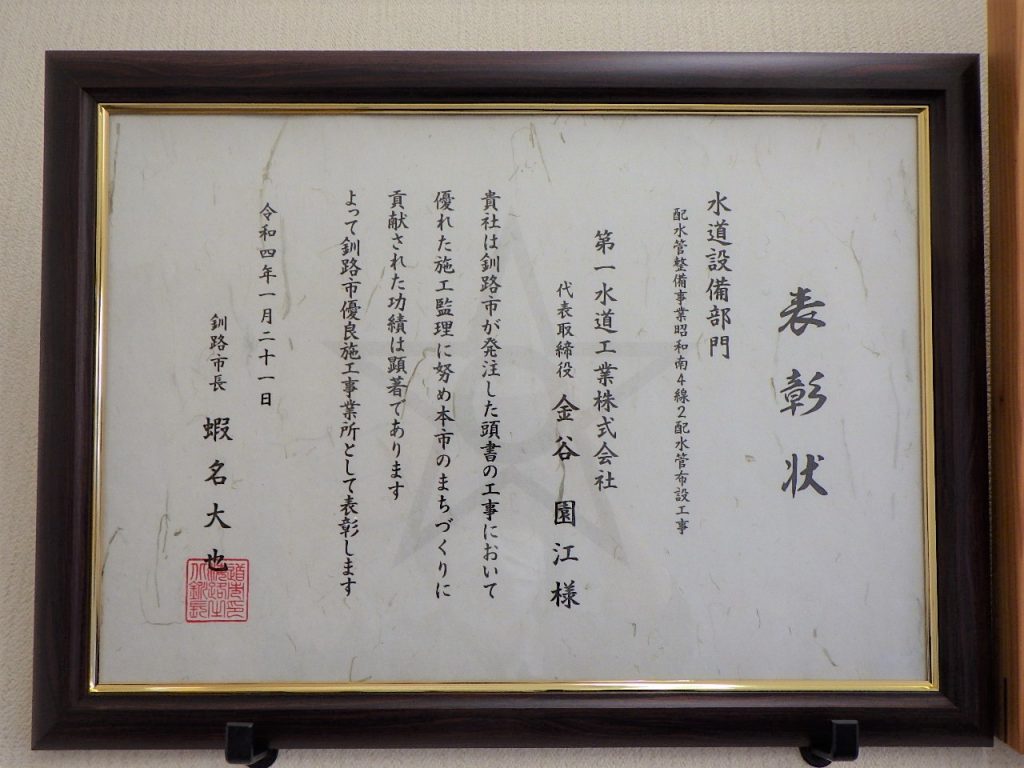 表彰状
水道設備部門
配水管整備事業昭和南4線2配水管布設工事
第一水道工業株式会社
代表取締役 金谷 園江 様
貴社は釧路市が発注した頭書の工事において
優れた施工監理に努め本市のまちづくりに
貢献された功績は顕著であります
よって釧路市優良施工事業所として表彰します
令和四年一月二十一日
釧路市長 蝦名大也